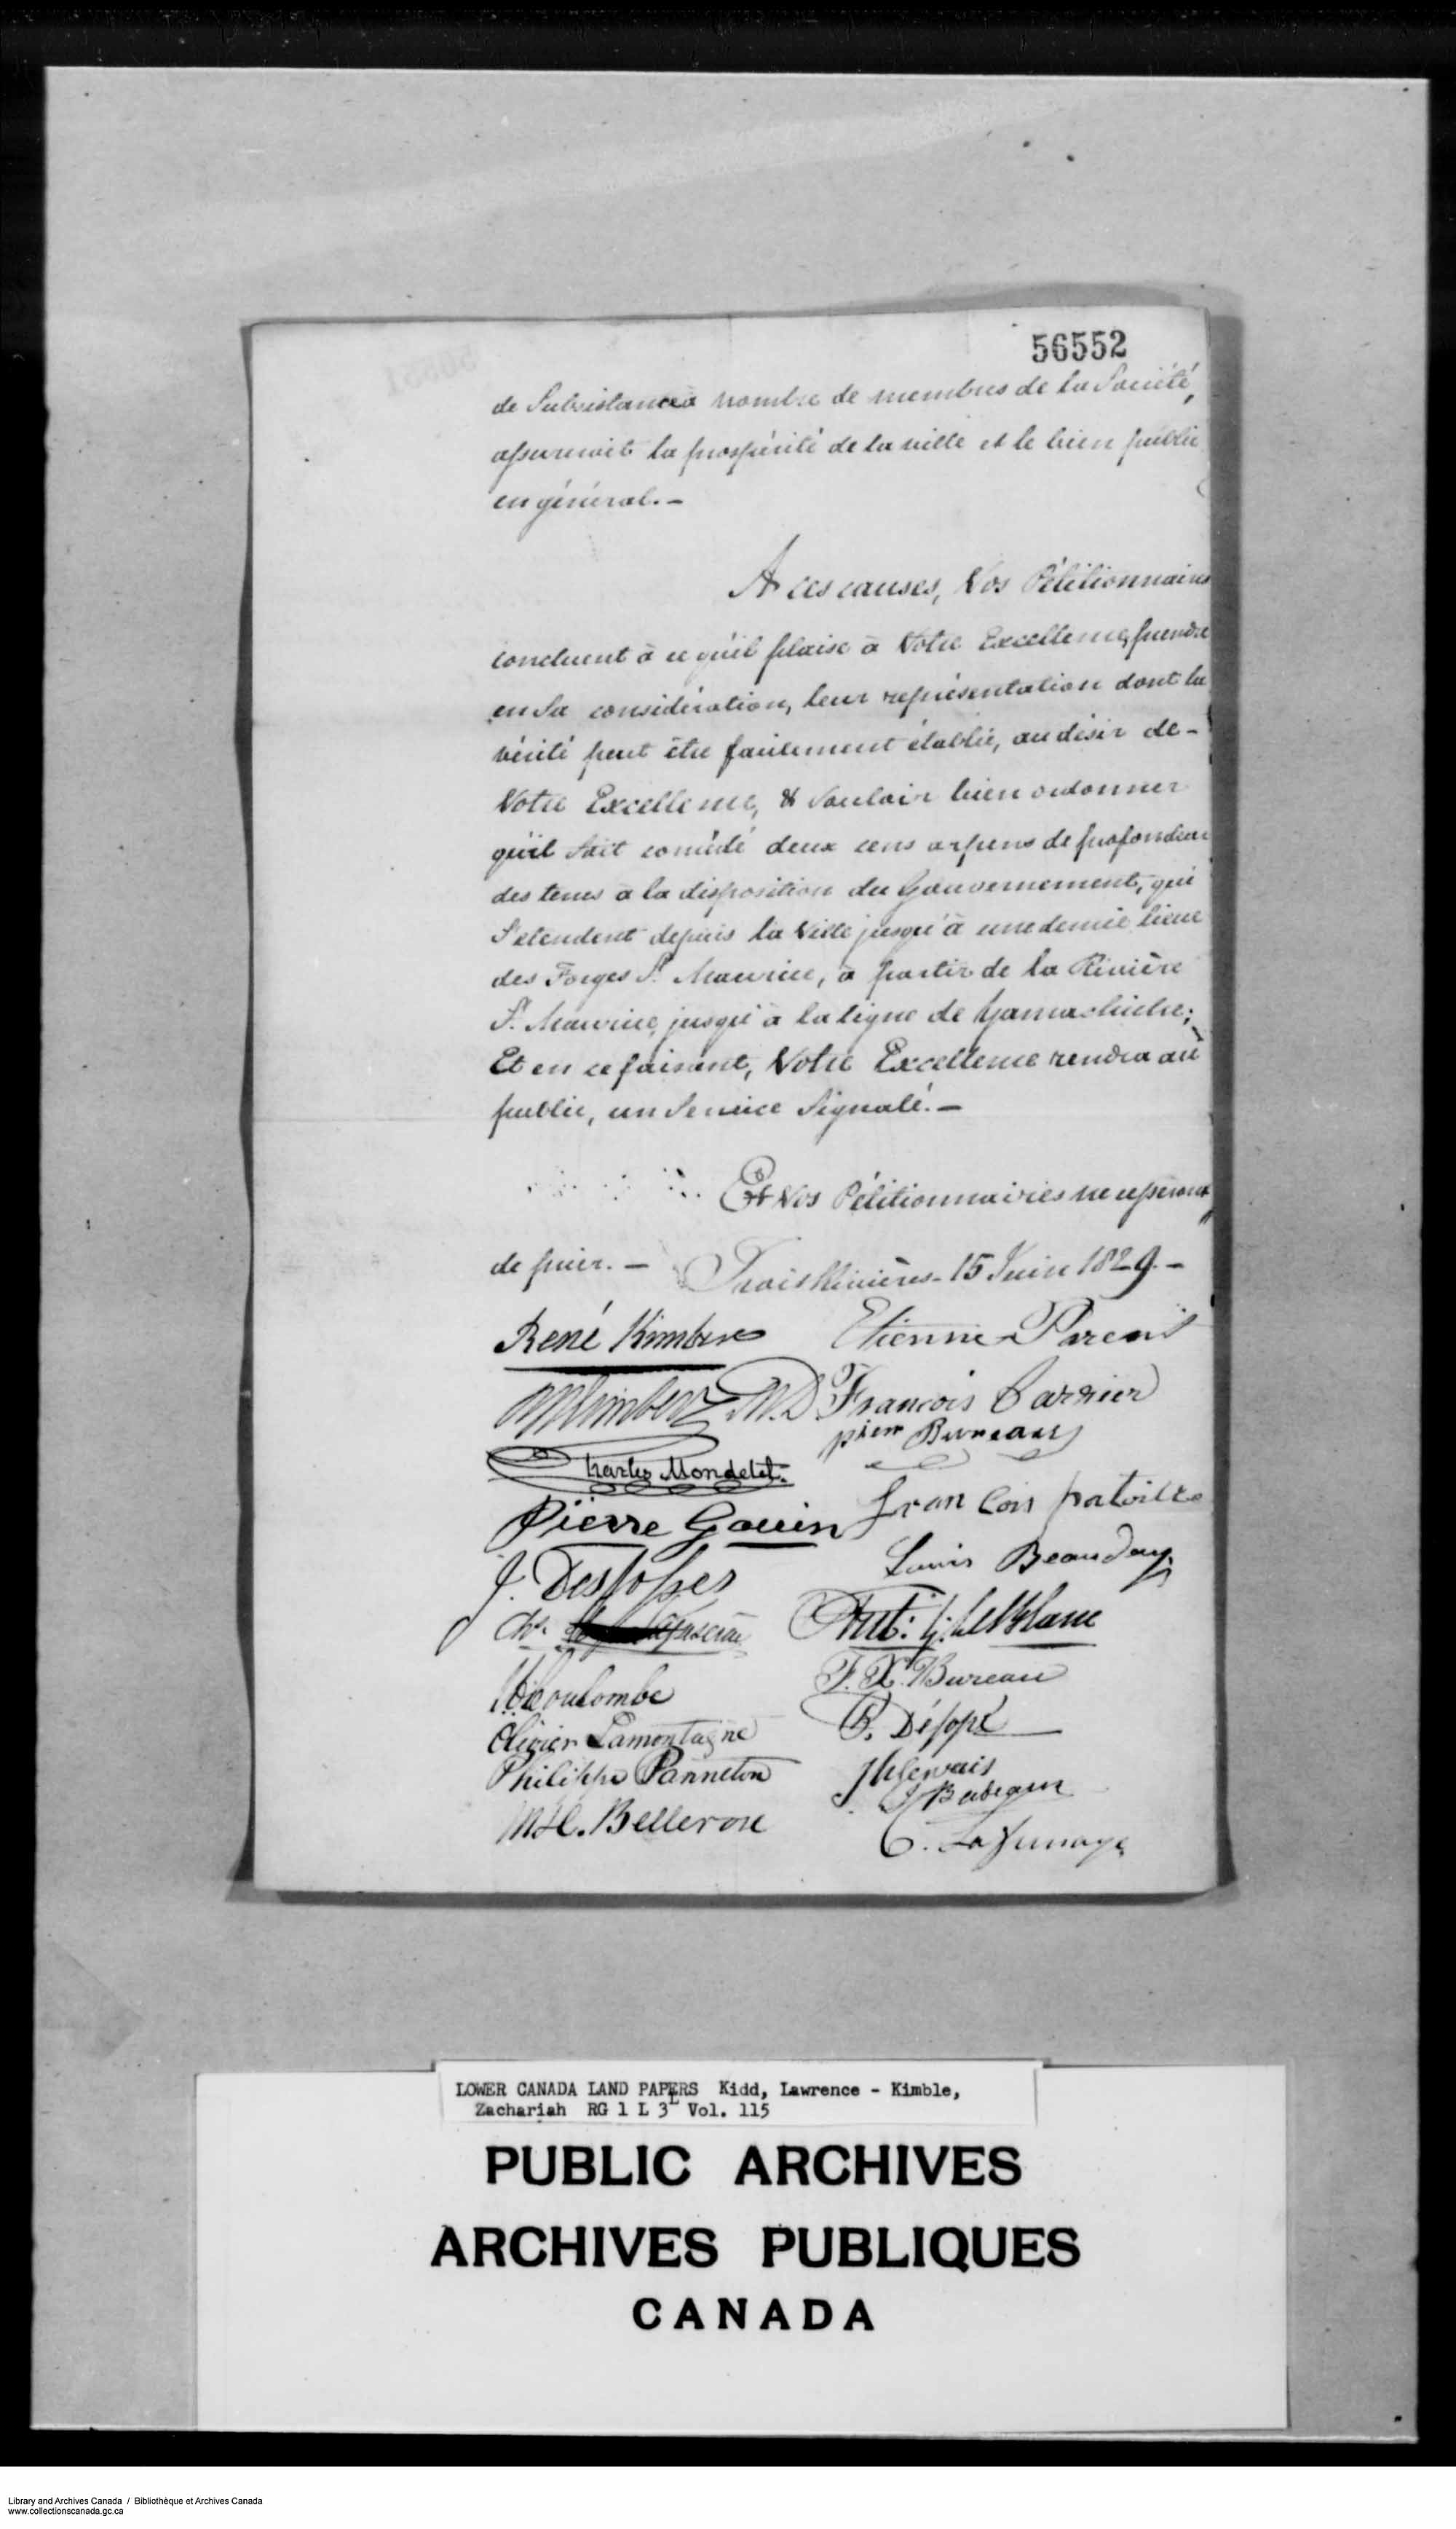 56552
de Subsistance à nombre de membres de la Société,
assureroit la prospérité de la ville et le bien public
en général. —
A ces causes, Vos Pétitionnaires
concluent à ce qu'il plaise à Votre Excellence, prendre
en Sa considération, leur représentation dont la
vérité peut être facilement établie, au désir de -
Votre Excellence, & vouloir bien ordonner
qu'il soit concédé deux cens arpens de profondeur
des terres à la disposition du Gouvernement, qui
S'etendent depuis la Ville jusqu'à une demie lieue
des Forges St. Maurice, à partir de la Rivière
St. Maurice, jusqu'à la ligne de Yamachiche;
Et en ce faisant, Votre Excellence rendra au
public, un Service Signalé. —
Et Vos Pétitionnaires ne cesseront
de prier. — Trois Rivières - 15 Juin 1829. —
René Kimber Etienne Parent
Kimber M.D. François Carrier
pierre Bureau
Charles Mondelet.
Pierre Gouin François
J. Desfossés Louis Beaudry
Chs. Ant: Z: LeBlanc
Coulombe F. X. Bureau
Olivier Lamontagne
Philippe Panneton Gervais
Bellerose
LOWER CANADA LAND PAPERS Kidd, Lawrence - Kimble,
Zachariah RG 1 L 3L Vol. 115
PUBLIC ARCHIVES
ARCHIVES PUBLIQUES
CANADA
Library and Archives Canada / Bibliothèque et Archives Canada
www.collectionscanada.gc.ca